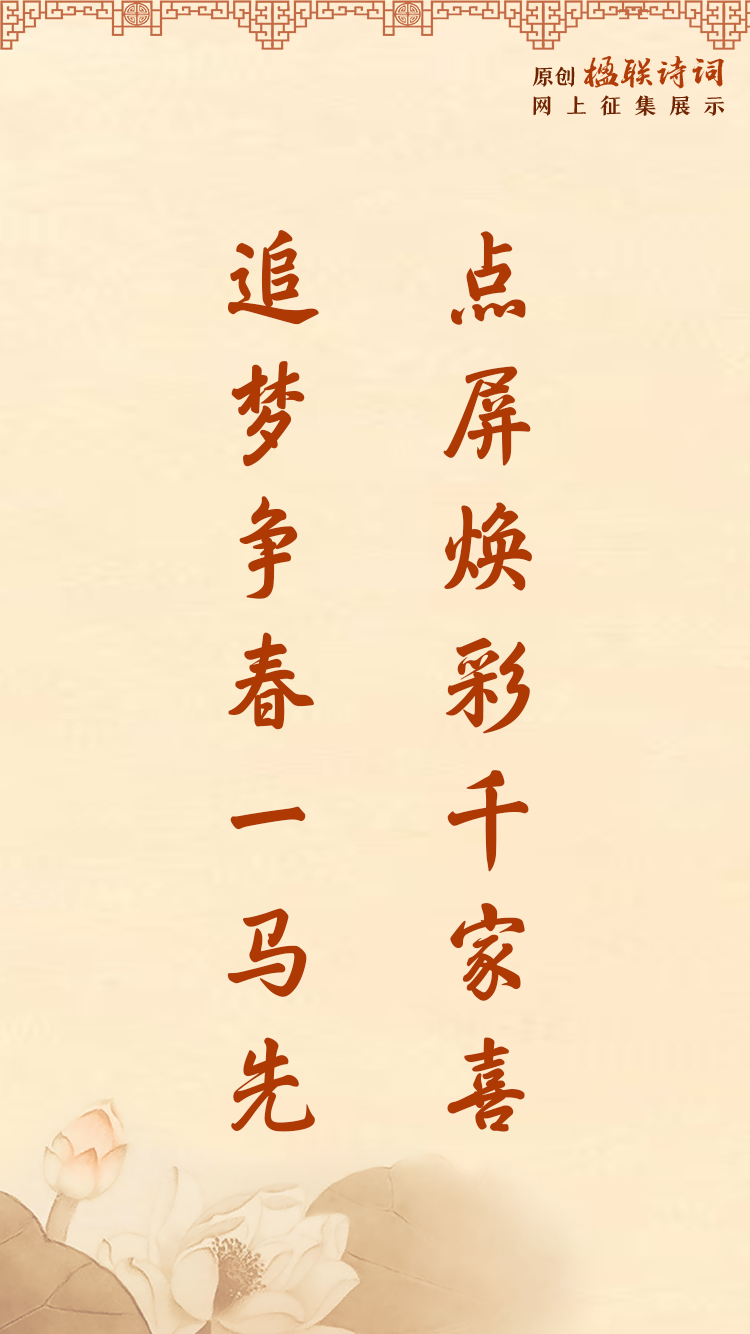 原创 楹联诗词
网上征集展示
点屏焕彩千家喜
追梦争春一马先